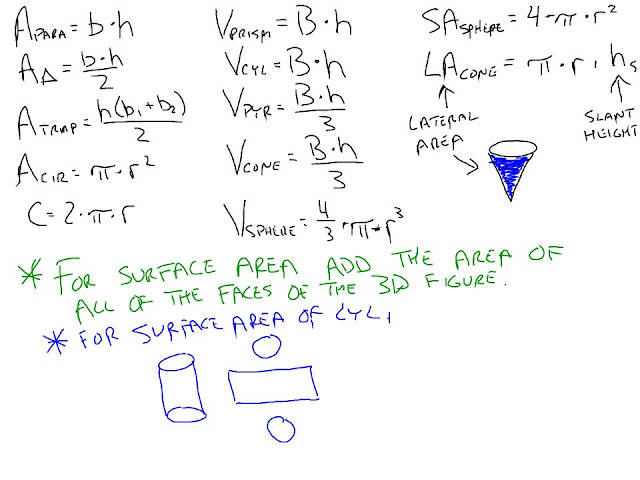 A PARA = b·h
A△ = b·h/2
A TRAP = h(b₁+b₂)/2
A CIR = π·r²
C = 2·π·r
V PRISM = B·h
V CYL = B·h
V PYR = B·h/3
V CONE = B·h/3
V SPHERE = 4/3·π·r³
SA SPHERE = 4·π·r²
LA CONE = π·r·h s
LATERAL
AREA
SLANT
HEIGHT
* FOR SURFACE AREA ADD THE AREA OF
ALL OF THE FACES OF THE 3D FIGURE.
* FOR SURFACE AREA OF CYL,